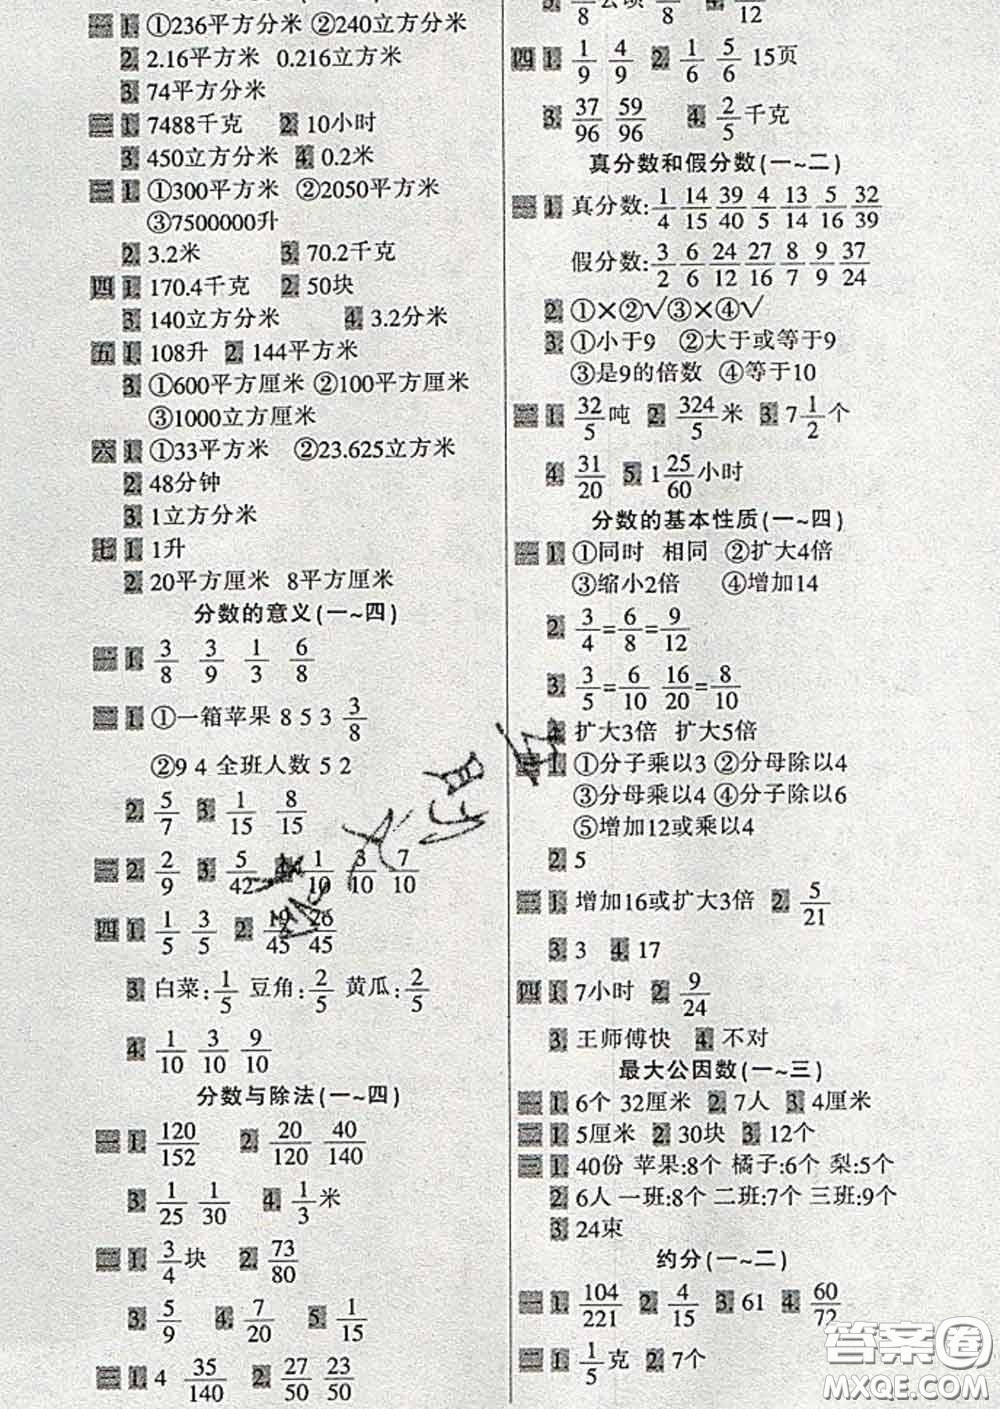 一 1. ①236平方分米 ②240立方分米
2. 2.16平方米 0.216立方米
3. 74平方分米
二 1. 7488千克 2. 10小时
3. 450立方分米 4. 0.2米
三 1. ①300平方米 ②2050平方米
③7500000升
2. 3.2米 3. 70.2千克
四 1. 170.4千克 2. 50块
3. 140立方分米 4. 3.2分米
五 1. 108升 2. 144平方分米
3. ①600平方厘米 ②100平方厘米
③1000立方厘米
六 1. ①33平方米 ②23.625立方米
2. 48分钟
3. 1立方分米
七 1. 1升
2. 20平方厘米 8平方厘米
分数的意义(一~四)
一 1. 3/8 3/9 1/3 6/8
二 1. ①一箱苹果 8 5 3 3/8
②9 4 全班人数 5 2
2. 5/7 3. 1/15 8/15
三 2. 2/9 3. 5/42 4. 1/10 3/10 7/10
四 1. 1/5 3/5 2. 19/45 26/45
3. 白菜:1/5 豆角:2/5 黄瓜:2/5
4. 1/10 3/10 9/10
分数与除法(一~四)
一 1. 120/152 2. 20/120 40/140
3. 1/25 1/30 4. 1/3米
二 1. 3/4块 2. 73/80
3. 5/9 4. 7/20 5. 1/15
三 1. 4 35/140 2. 27/50 23/50
3. /8公顷 4. /12
四 1. 1/9 4/9 2. 1/6 5/6 15页
3. 37/96 59/96 4. 2/5千克
真分数和假分数(一~二)
一 1. 真分数:1/4 14/15 39/40 4/5 13/14 5/16 32/39
假分数:3/2 6/6 24/12 27/16 8/7 9/9 37/24
2. ①×②√③×④√
3. ①小于9 ②大于或等于9
③是9的倍数 ④等于10
二 1. 32/5吨 2. 324/5米 3. 7 1/2个
4. 31/20 5. 1 25/60小时
分数的基本性质(一~四)
一 1. ①同时 相同 ②扩大4倍
③缩小2倍 ④增加14
2. 3/4=6/8=9/12
3. 3/5=6/10 16/20=8/10
4. 扩大3倍 扩大5倍
二 1. ①分子乘以3 ②分母除以4
③分母乘以4 ④分子除以6
⑤增加12或乘以4
2. 5
三 1. 增加16或扩大3倍 2. 5/21
3. 3 4. 17
四 1. 7小时 2. 9/24
3. 王师傅快 4. 不对
最大公因数(一~三)
一 1. 6个 32厘米 2. 7人 3. 4厘米
二 1. 5厘米 2. 30块 3. 12个
三 1. 40份 苹果:8个 橘子:6个 梨:5个
2. 6人 一班:8个 二班:7个 三班:9个
3. 24束
约分(一~二)
一 1. 104/221 2. 4/15 3. 61 4. 60/72
二 1. 1/5克 2. 7个
答案圈
MXQE.COM